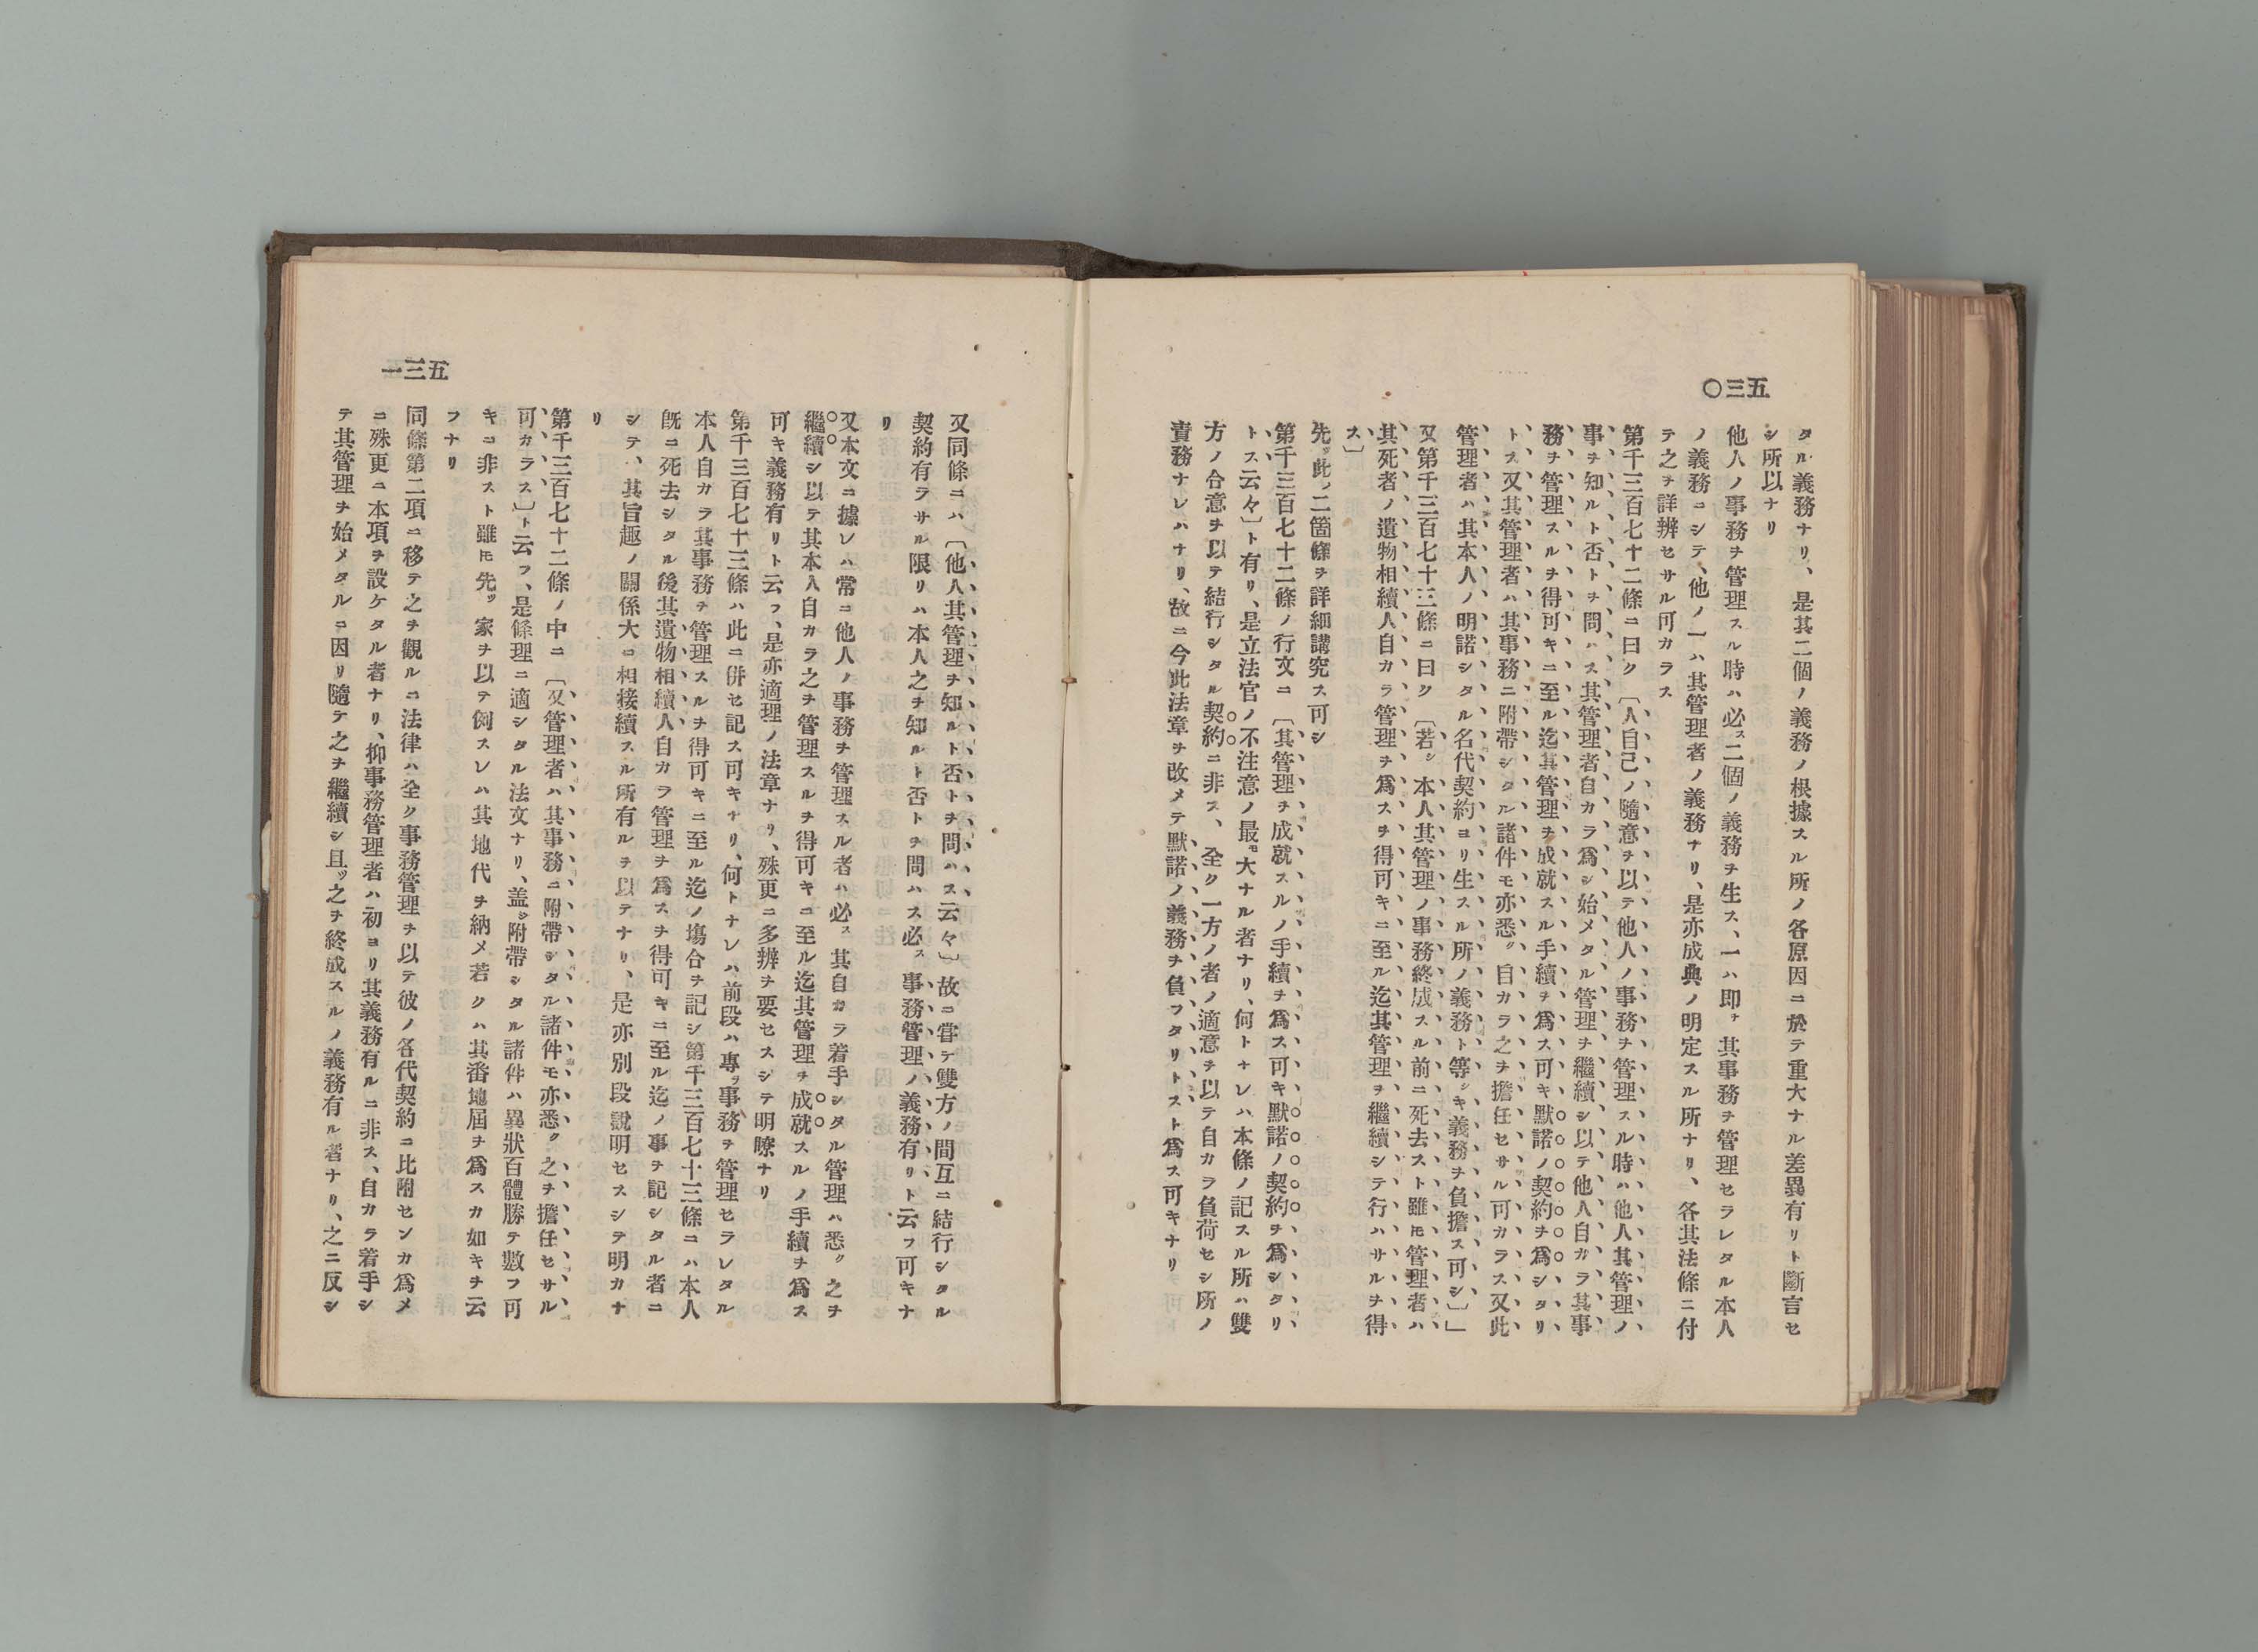 五三〇
タル義務ナリ、是其二個ノ義務ノ根據スル所ノ各原因ニ於テ重大ナル差異有リト斷言セ
シ所以ナリ
他人ノ事務ヲ管理スル時ハ必ス二個ノ義務ヲ生ス、一ハ即チ其事務ヲ管理セラレタル本人
ノ義務ニシテ、他ノ一ハ其管理者ノ義務ナリ、是亦成典ノ明定スル所ナリ、各其法條ニ付
テ之ヲ詳辨セサル可カラス
第千三百七十二條ニ曰ク〔人自己ノ隨意ヲ以テ他人ノ事務ヲ管理スル時ハ他人其管理ノ
事ヲ知ルト否トヲ問ハス其管理者自カラ爲シ始メタル管理ヲ繼續シ以テ他人自カラ其事
務ヲ管理スルヲ得可キニ至ル迄其管理ヲ成就スル手續ヲ爲ス可キ默諾ノ契約ヲ爲シタリ
トス又其管理者ハ其事務ニ附帶シタル諸件モ亦悉ク自カラ之ヲ擔任セサル可カラス又此
管理者ハ其本人ノ明諾シタル名代契約ヨリ生スル所ノ義務ト等シキ義務ヲ負擔ス可シ〕」
又第千三百七十三條ニ曰ク〔若シ本人其管理ノ事務終成スル前ニ死去スト雖モ管理者ハ
其死者ノ遺物相續人自カラ管理ヲ爲スヲ得可キニ至ル迄其管理ヲ繼續シテ行ハサルヲ得
ス〕
先ツ此ノ二箇條ヲ詳細講究ス可シ
第千三百七十二條ノ行文ニ〔其管理ヲ成就スルノ手續ヲ爲ス可キ默諾ノ契約ヲ爲シタリ
トス云々〕ト有リ、是立法官ノ不注意ノ最モ大ナル者ナリ、何トナレハ本條ノ記スル所ハ雙
方ノ合意ヲ以テ結行シタル契約ニ非ス、全ク一方ノ者ノ適意ヲ以テ自カラ負荷セシ所ノ
責務ナレハナリ、故ニ今此法章ヲ改メテ默諾ノ義務ヲ負フタリトスト爲ス可キナリ
五三一
又同條ニハ〔他人其管理ヲ知ルト否トヲ問ハス云々〕故ニ甞テ雙方ノ間互ニ結行シタル
契約有ラサル限リハ本人之ヲ知ルト否トヲ問ハス必ス事務管理ノ義務有リト云フ可キナ
リ
又本文ニ據レハ常ニ他人ノ事務ヲ管理スル者ハ必ス其自カラ着手シタル管理ハ悉ク之ヲ
繼續シ以テ其本人自カラ之ヲ管理スルヲ得可キニ至ル迄其管理ヲ成就スルノ手續ヲ爲ス
可キ義務有リト云フ、是亦適理ノ法章ナリ、殊更ニ多辨ヲ要セスシテ明瞭ナリ
第千三百七十三條ハ此ニ併セ記ス可キナリ、何トナレハ前段ハ專ラ事務ヲ管理セラレタル
本人自カラ其事務ヲ管理スルヲ得可キニ至ル迄ノ塲合ヲ記シ第千三百七十三條ニハ本人
既ニ死去シタル後其遺物相續人自カラ管理ヲ爲スヲ得可キニ至ル迄ノ事ヲ記シタル者ニ
シテ、其旨趣ノ關係大ニ相接續スル所有ルヲ以テナリ、是亦別段說明セスシテ明カナ
リ
第千三百七十二條ノ中ニ〔又管理者ハ其事務ニ附帶シタル諸件モ亦悉ク之ヲ擔任セサル
可カラス〕ト云フ、是條理ニ適シタル法文ナリ、盖シ附帶シタル諸件ハ異狀百體勝テ數フ可
キニ非スト雖モ先ツ家ヲ以テ例スレハ其地代ヲ納メ若クハ其番地屆ヲ爲スカ如キヲ云
フナリ
同條第二項ニ移テ之ヲ觀ルニ法律ハ全ク事務管理ヲ以テ彼ノ各代契約ニ比附センカ爲メ
ニ殊更ニ本項ヲ設ケタル者ナリ、抑事務管理者ハ初ヨリ其義務有ルニ非ス、自カラ着手シ
テ其管理ヲ始メタルニ因リ隨テ之ヲ繼續シ且ツ之ヲ終成スルノ義務有ル者ナリ、之ニ反シ